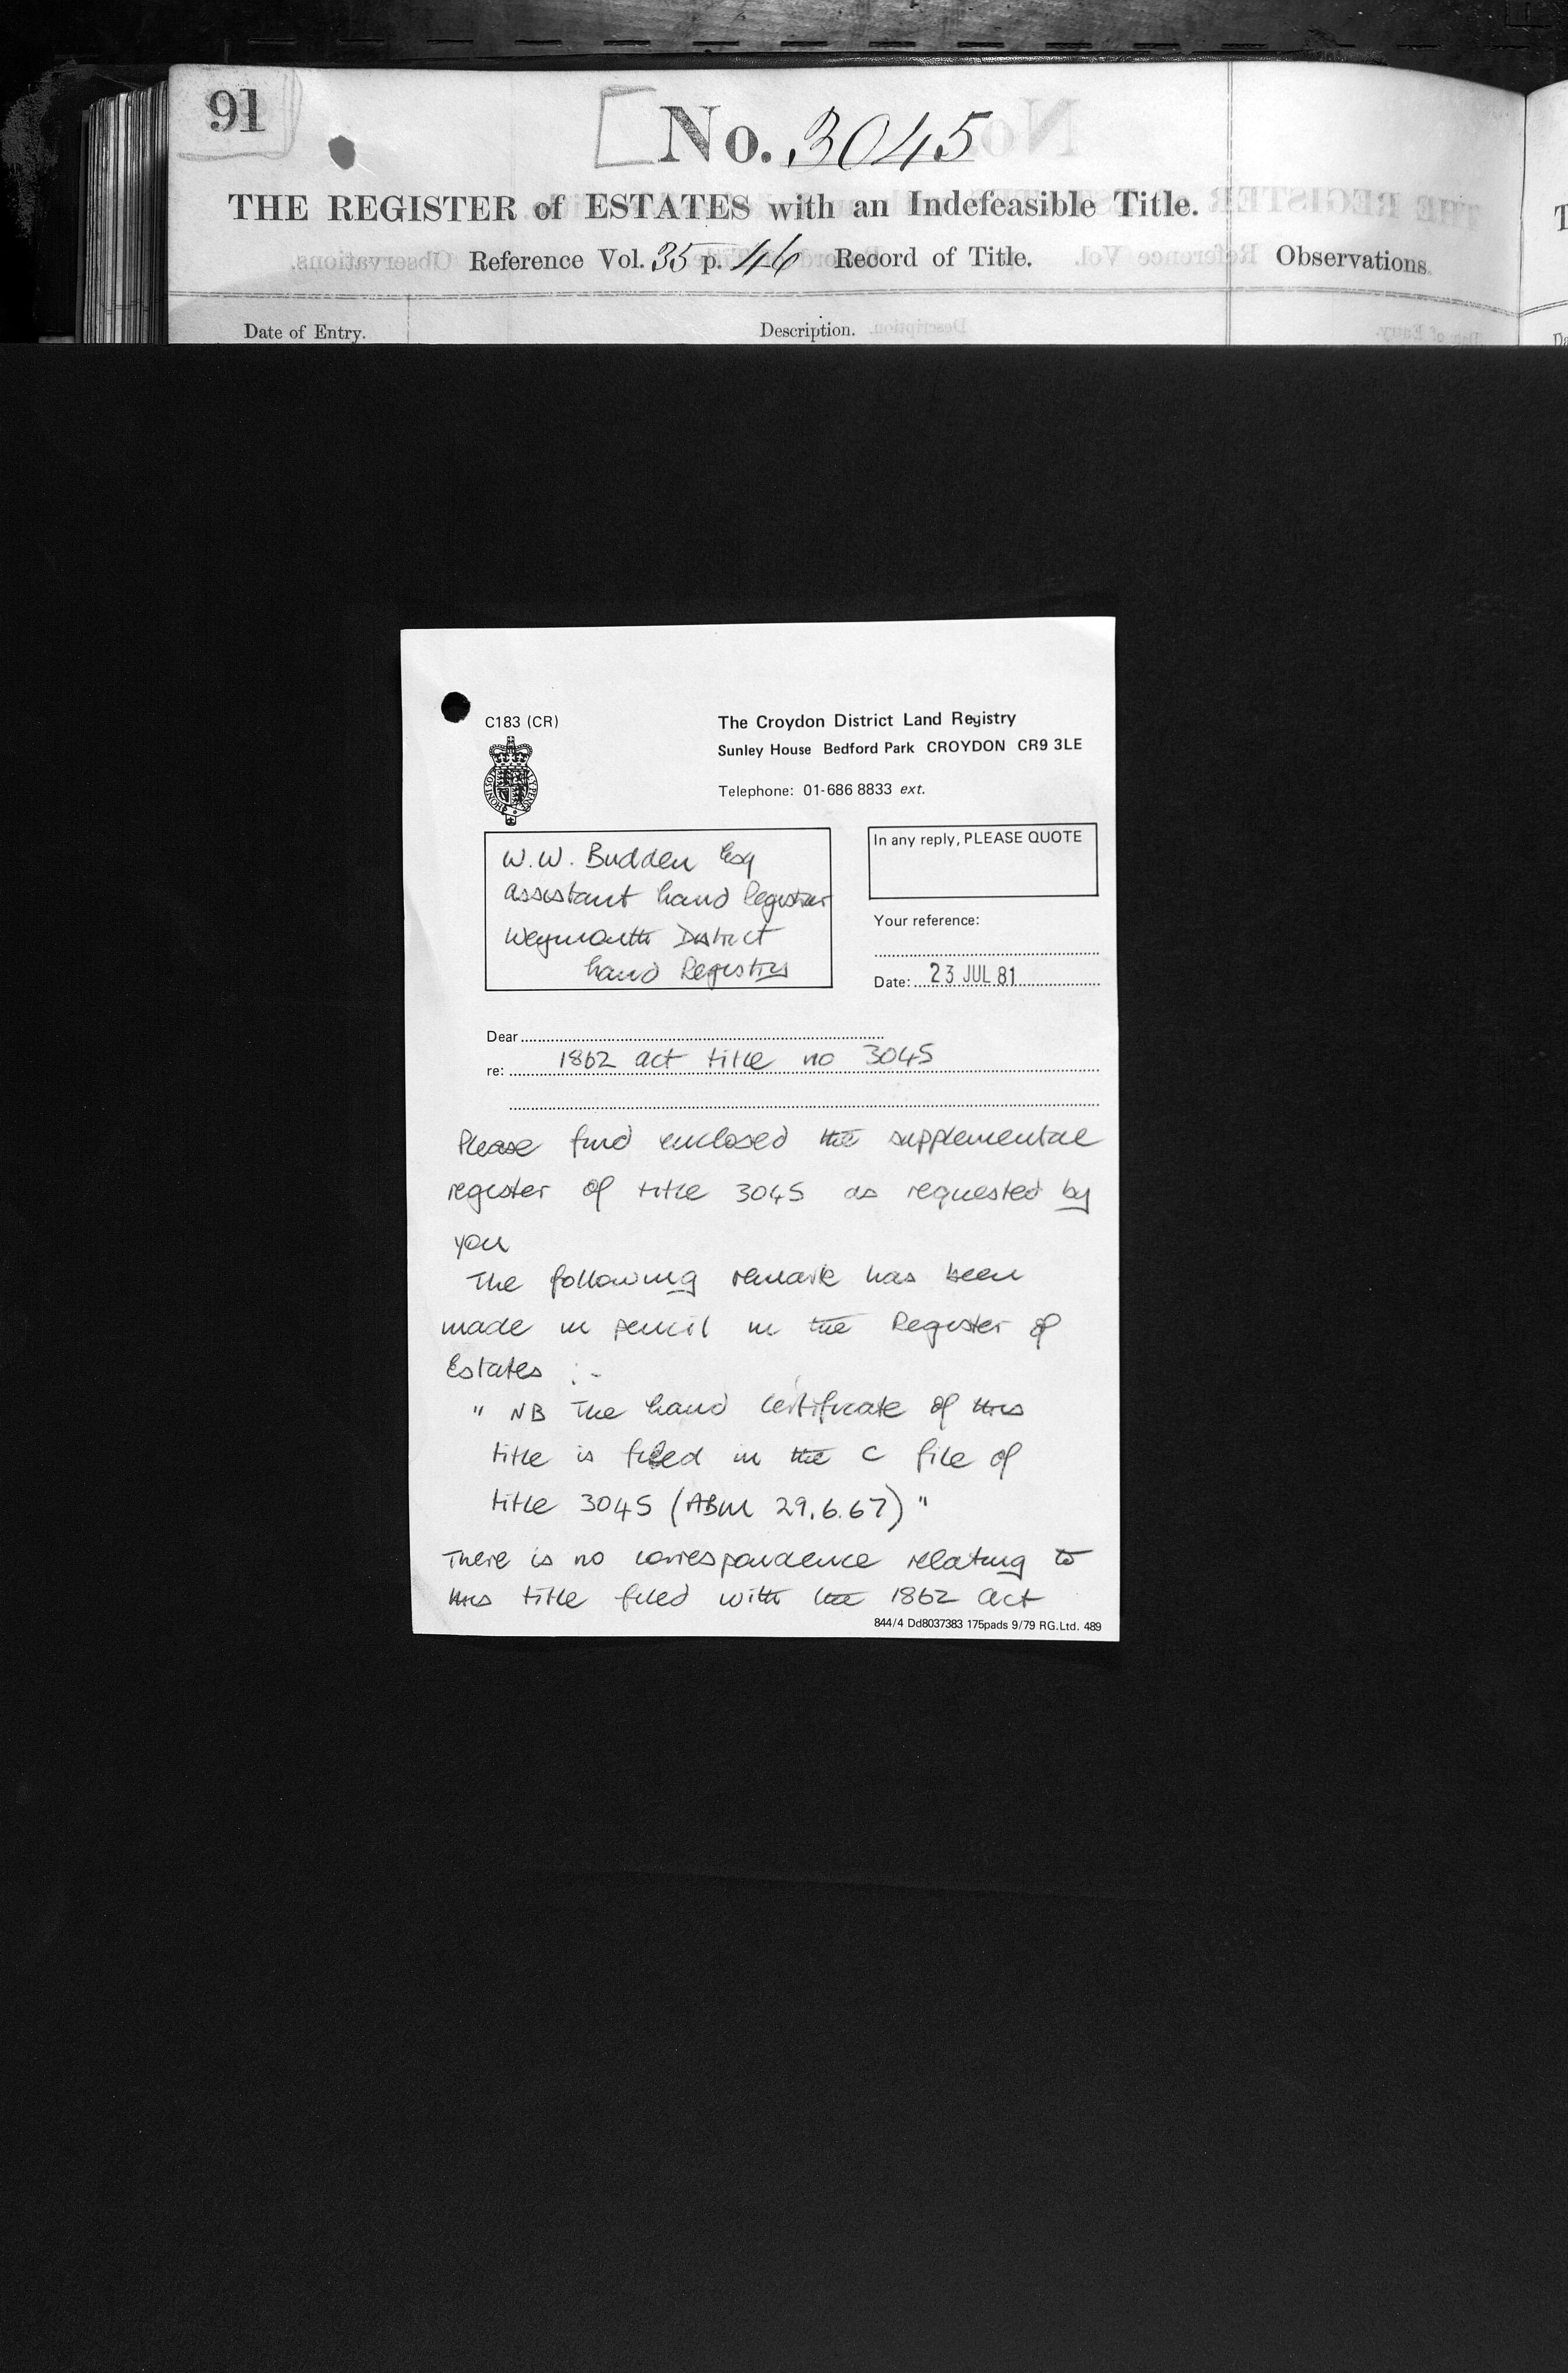 91
No. 3045
THE REGISTER of ESTATES with an Indefeasible Title.
Reference Vol. 35 p. 46 Record of Title.
Observations.
Date of Entry.
Description.
C183 (CR)
The Croydon District Land Registry
Sunley House Bedford Park CROYDON CR9 3LE
Telephone: 01-686 8833 ext.
W.W. Budden Esq
Assistant Land Registrar
Weymouth District
Land Registry
In any reply, PLEASE QUOTE
Your reference:
Date: 23 JUL 81
Dear
re: 1862 act title no 3045
Please find enclosed the supplemental
register of title 3045 as requested by
you
The following remark has been
made in pencil in the Register of
Estates :-
" NB The Land Certificate of this
title is filed in the C file of
title 3045 (ABM 29.6.67) "
There is no correspondence relating to
this title filed with the 1862 Act
844/4 Dd8037383 175pads 9/79 RG.Ltd. 489